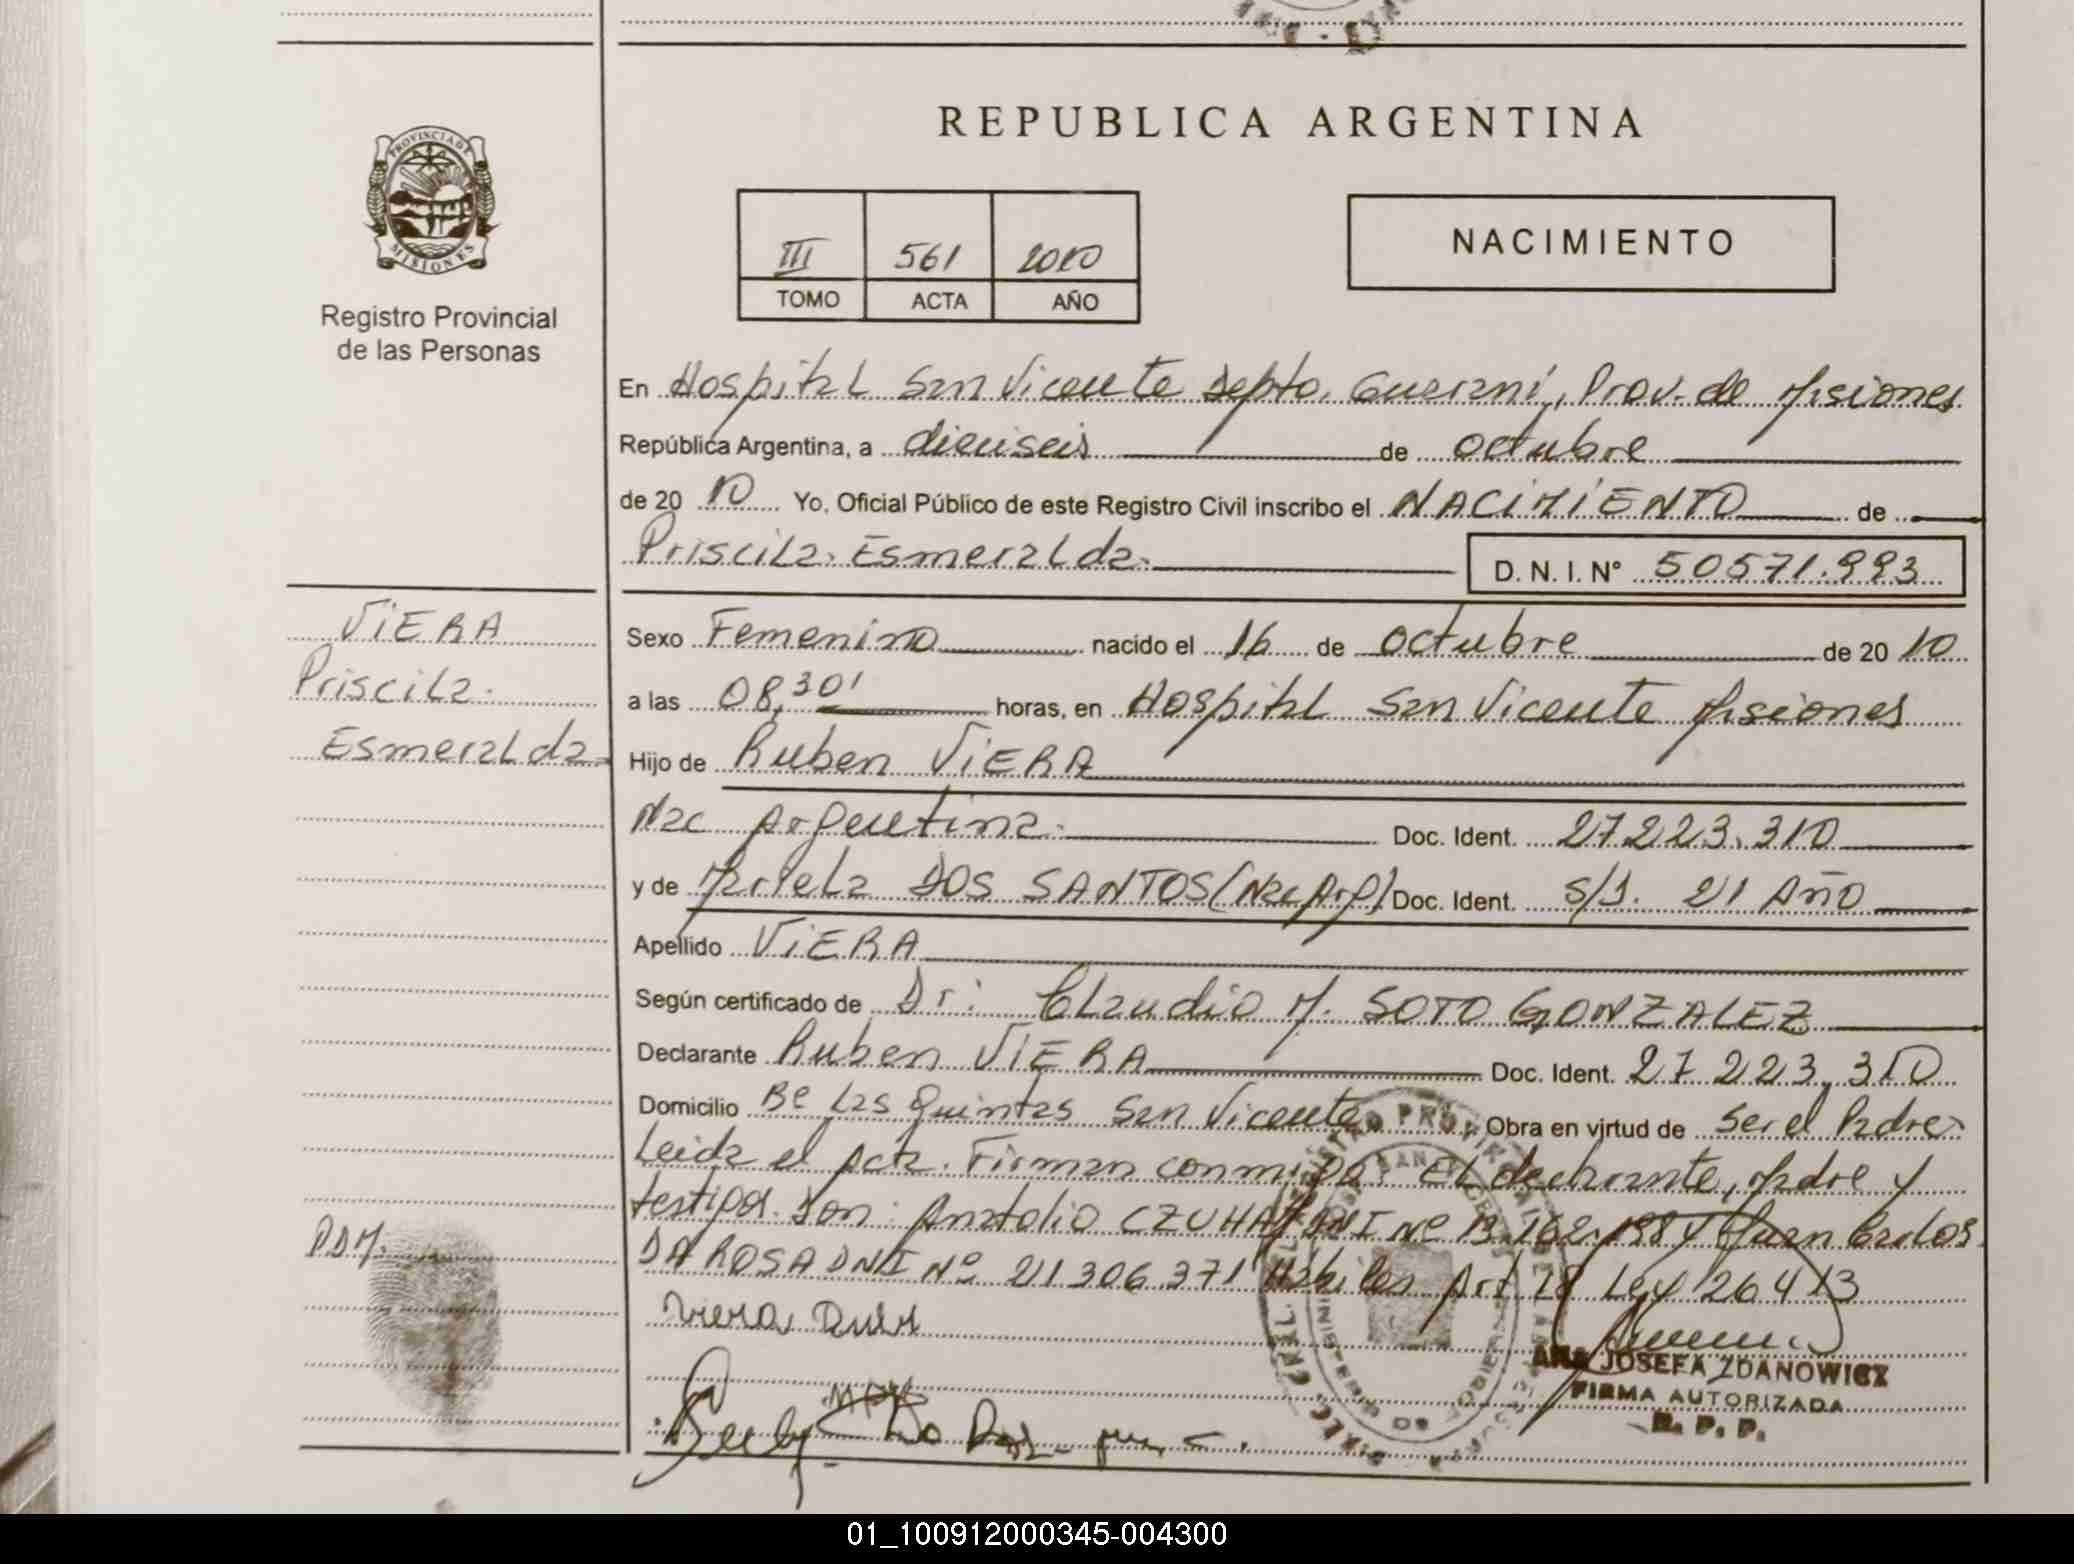 REPUBLICA ARGENTINA
PROVINCIA DE
MISIONES
Registro Provincial
de las Personas
III 561 2010
TOMO ACTA AÑO
NACIMIENTO
En Hospital San Vicente Depto. Guarani, Prov. de Misiones
República Argentina, a dieciseis de octubre
de 20 10 Yo, Oficial Público de este Registro Civil inscribo el NACIMIENTO de
Priscila Esmeralda D. N. I. Nº 50571.993
VIERA
Priscila
Esmeralda
Sexo Femenino nacido el 16 de octubre de 20 10
a las 08,30' horas, en Hospital San Vicente Misiones
Hijo de Ruben VIERA
Nac Argentina Doc. Ident. 27223.310
y de Mariela DOS SANTOS (Nac Arg) Doc. Ident. S/D. 21 Año
Apellido VIERA
Según certificado de Dr: Claudio M. SOTO GONZALEZ
Declarante Ruben VIERA Doc. Ident. 27 223.310
Domicilio Bº Las Quintas San Vicente Obra en virtud de ser el Padre
Leida el Acta. Firman conmigo: El declarante, Madre y
testigos. Don: Anatolio DNI Nº 13.162.198 y Juan Carlos
DA ROSA DNI Nº 21306371 Habiles Art 18 Ley 26413
PDM.
Viera
ANA JOSEFA ZDANOWICZ
FIRMA AUTORIZADA
R. P. P.
01_100912000345-004300